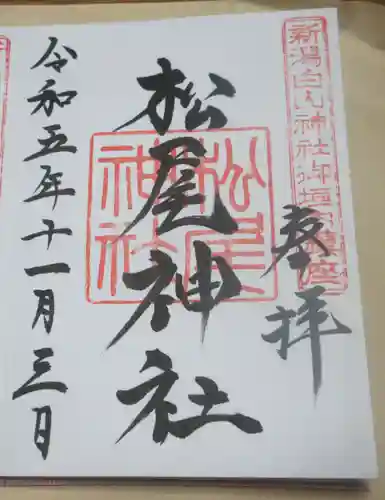 新潟白山神社御垣内鎮座
奉拝
松尾神社
松尾神社
令和五年十一月三日